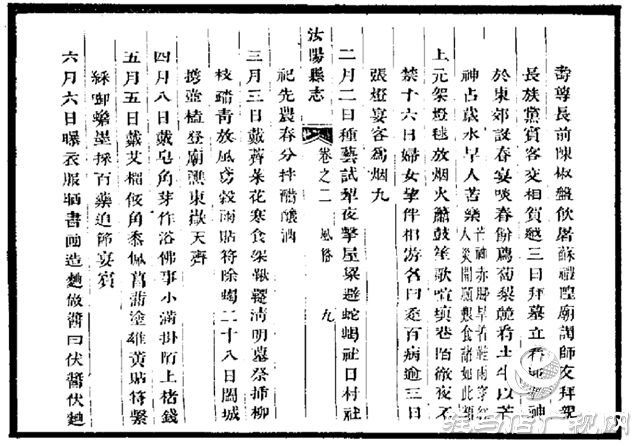 壽尊長前陳椒盤飲屠蘇禮隍廟謁師友拜
長族黨賀客交相賀越三日拜墓立春
於東郊設春宴啖春餅薦蔔梨競看土牛以芒
神占歲水旱人苦樂
上元架燈毬放烟火簫鼓笙歌喧填巷陌徹夜不
禁十六日婦女挈伴相游名曰走百病逾三日
張燈宴客爲烟九
二月二日種藝試犂夜擊屋樑避蛇蝎社日村社
汝陽縣志
卷之二 風俗 九
祀先農春分拌醋釀酒
三月三日戴薺菜花寒食架鞦韆清明墓祭插柳
枝踏青放風鳶穀雨貼符除蝎二十八日闔城
攜壺榼登廟醮東嶽天齊
四月八日戴皂角芽作浴佛事小滿掛陌上楮錢
五月五日戴艾榴佼角黍佩菖蒲塗雄黃貼符繫
綵
墨採百藥追節宴賓
六月六日曝衣服晒書畫造麵做醬曰伏醬伏麵
駐馬店广视网